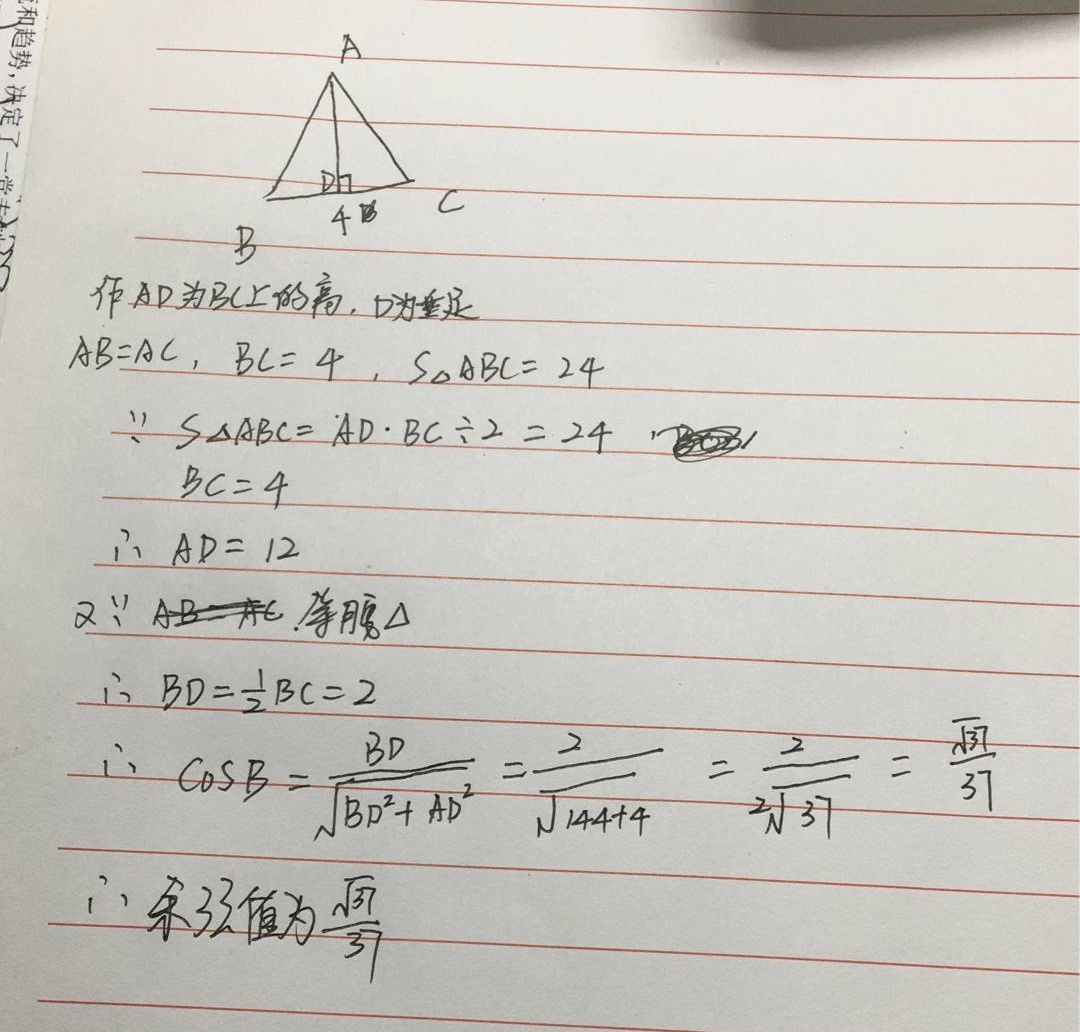 和趋势,决定了一
A
D
4
B
C
作AD为BC上的高,D为垂足
AB=AC, BC=4, S△ABC=24
∵ S△ABC=AD·BC÷2=24
BC=4
∴ AD=12
又∵ 等腰△
∴ BD=\frac{1}{2}BC=2
∴ COSB=\frac{BD}{\sqrt{BD²+AD²}}=\frac{2}{\sqrt{144+4}}=\frac{2}{2\sqrt{37}}=\frac{\sqrt{37}}{37}
∴ 余弦值为\frac{\sqrt{37}}{37}